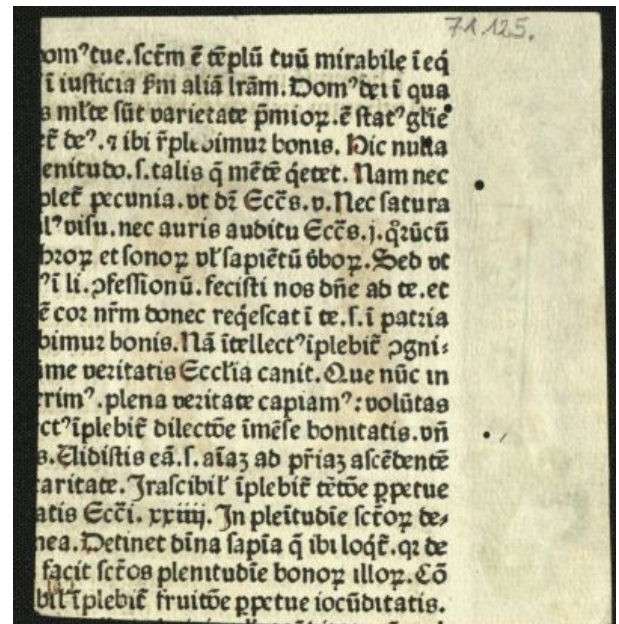 71.125.
omꝰ tue. sctm̄ ē tēplū tuū mirabile ī eq̇
ī iusticia ẜm aliā lr̄am. Domꝰ dei ī qua
s ml̓te sūt varietate p̄mioꝝ. ē statꝰ gl̄ie
et̄ deꝰ. ⁊ ibi r̄plebimur bonis. Hic nulla
enitudo. s. talis q̄ mētē q̇etet. Nam nec
plet̄ pecunia. vt dr̄ Eccs̄. v. Nec satura
l̓ꝰ visu. nec auris auditu Eccs̄. j. q̊rūcū
broꝝ et sonoꝝ vl̓ sapiētū v̓boꝝ. Sed vt
ꝰ ī li. ꝯfessionū. fecisti nos dn̄e ad te. et
ē cor nr̄m donec req̇escat ī te. s. ī patria
bimur bonis. Nā ītellectꝰ īplebit̄ ꝯgni⸗
me veritatis Eccl̓ia canit. Que nūc in
rimꝰ. plena veritate capiamꝰ: volūtas
ctꝰ īplebit̄ dilectōe īmēse bonitatis. vn̄
s. Elidistis eā. s. aīaꝫ ad pr̄iaꝫ ascēdentē
aritate. Irascibil̓ īplebit̄ tētōe ꝑpetue
atis Ecci̅. xxiiij. In pleītudīe sctōꝝ de⸗
nea. Detinet dīna sapīa q̄ ibi loqt̄. qꝛ de
facit sctōs plenitudīe bonoꝝ illoꝝ. Cō
bil̓ īplebit̄ fruitōe ꝑpetue iocūditatis.